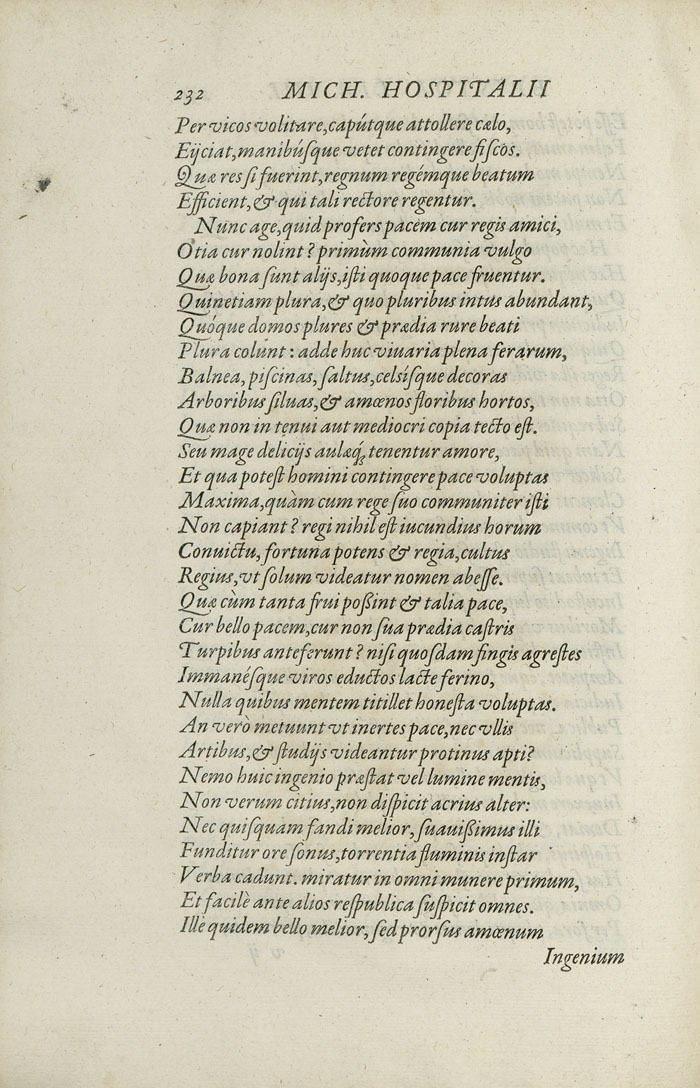 232 MICH. HOSPITALII
Per vicos volitare, capútque attollere cælo,
Eijciat, manibúsque vetet contingere fiscos.
Quæ res si fuerint, regnum regémque beatum
Efficient, & qui tali rectore regentur.
Nunc age, quid profers pacem cur regis amici,
Otia cur nolint? primùm communia vulgo
Quæ bona sunt alijs, isti quoque pace fruentur.
Quinetiam plura, & quo pluribus intus abundant,
Quóque domos plures & prædia rure beati
Plura colunt: adde huc viuaria plena ferarum,
Balnea, piscinas, saltus, celsisque decoras
Arboribus siluas, & amœnos floribus hortos,
Quæ non in tenui aut mediocri copia tecto est.
Seu mage delicijs aulæq́; tenentur amore,
Et qua potest homini contingere pace voluptas
Maxima, quàm cum rege suo communiter isti
Non capiant? regi nihil est iucundius horum
Conuictu, fortuna potens & regia, cultus
Regius, vt solum videatur nomen abesse.
Quæ cùm tanta frui poßint & talia pace,
Cur bello pacem, cur non sua prædia castris
Turpibus anteferunt? nisi quosdam fingis agrestes
Immanésque viros eductos lacte ferino,
Nulla quibus mentem titillet honesta voluptas.
An verò metuunt vt inertes pace, nec vllis
Artibus, & studijs videantur protinus apti?
Nemo huic ingenio præstat vel lumine mentis,
Non verum citius, non dispicit acrius alter:
Nec quisquam fandi melior, suauißimus illi
Funditur ore sonus, torrentia fluminis instar
Verba cadunt. miratur in omni munere primum,
Et facilè ante alios respublica suspicit omnes.
Ille quidem bello melior, sed prorsus amœnum
Ingenium